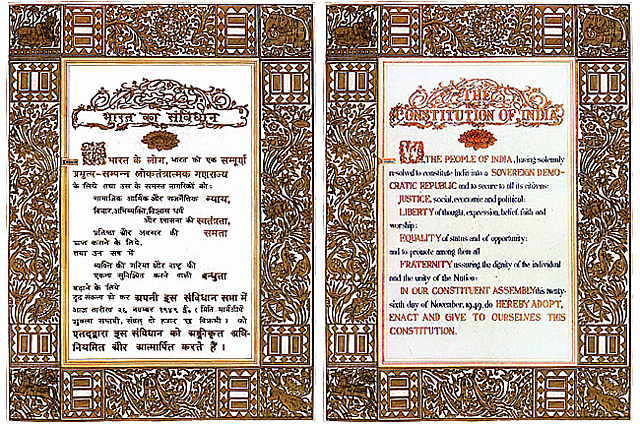 भारत का संविधान
भारत के लोग, भारत को एक सम्पूर्ण
प्रभुत्व-सम्पन्न लोकतंत्रात्मक गणराज्य
के लिये तथा उस के समस्त नागरिकों को:
सामाजिक आर्थिक और राजनैतिक न्याय,
विचार,अभिव्यक्ति,विश्वास धर्म
और उपासना की स्वतंत्रता,
प्रतिष्ठा और अवसर की समता
प्राप्त कराने के लिये,
तथा उन सब में
व्यक्ति की गरिमा और राष्ट्र की
एकता सुनिश्चित करने वाली बन्धुता
बढ़ाने के लिये
दृढ़ संकल्प हो कर अपनी इस संविधान सभा में
आज तारीख २६ नवम्बर १९४९ ई. (मिति मार्गशीर्ष
शुक्ला सप्तमी, संवत् दो हज़ार छ विक्रमी) को
एतद्द्वारा इस संविधान को अङ्गीकृत अधि-
नियमित और आत्मार्पित करते हैं।
THE
CONSTITUTION OF INDIA
WE, THE PEOPLE OF INDIA, having solemnly
resolved to constitute India into a SOVEREIGN DEMO-
CRATIC REPUBLIC and to secure to all its citizens:
JUSTICE, social, economic and political;
LIBERTY of thought, expression, belief, faith and
worship;
EQUALITY of status and of opportunity;
and to promote among them all
FRATERNITY assuring the dignity of the individual
and the unity of the Nation;
IN OUR CONSTITUENT ASSEMBLY this twenty-
sixth day of November, 1949, do HEREBY ADOPT,
ENACT AND GIVE TO OURSELVES THIS
CONSTITUTION.